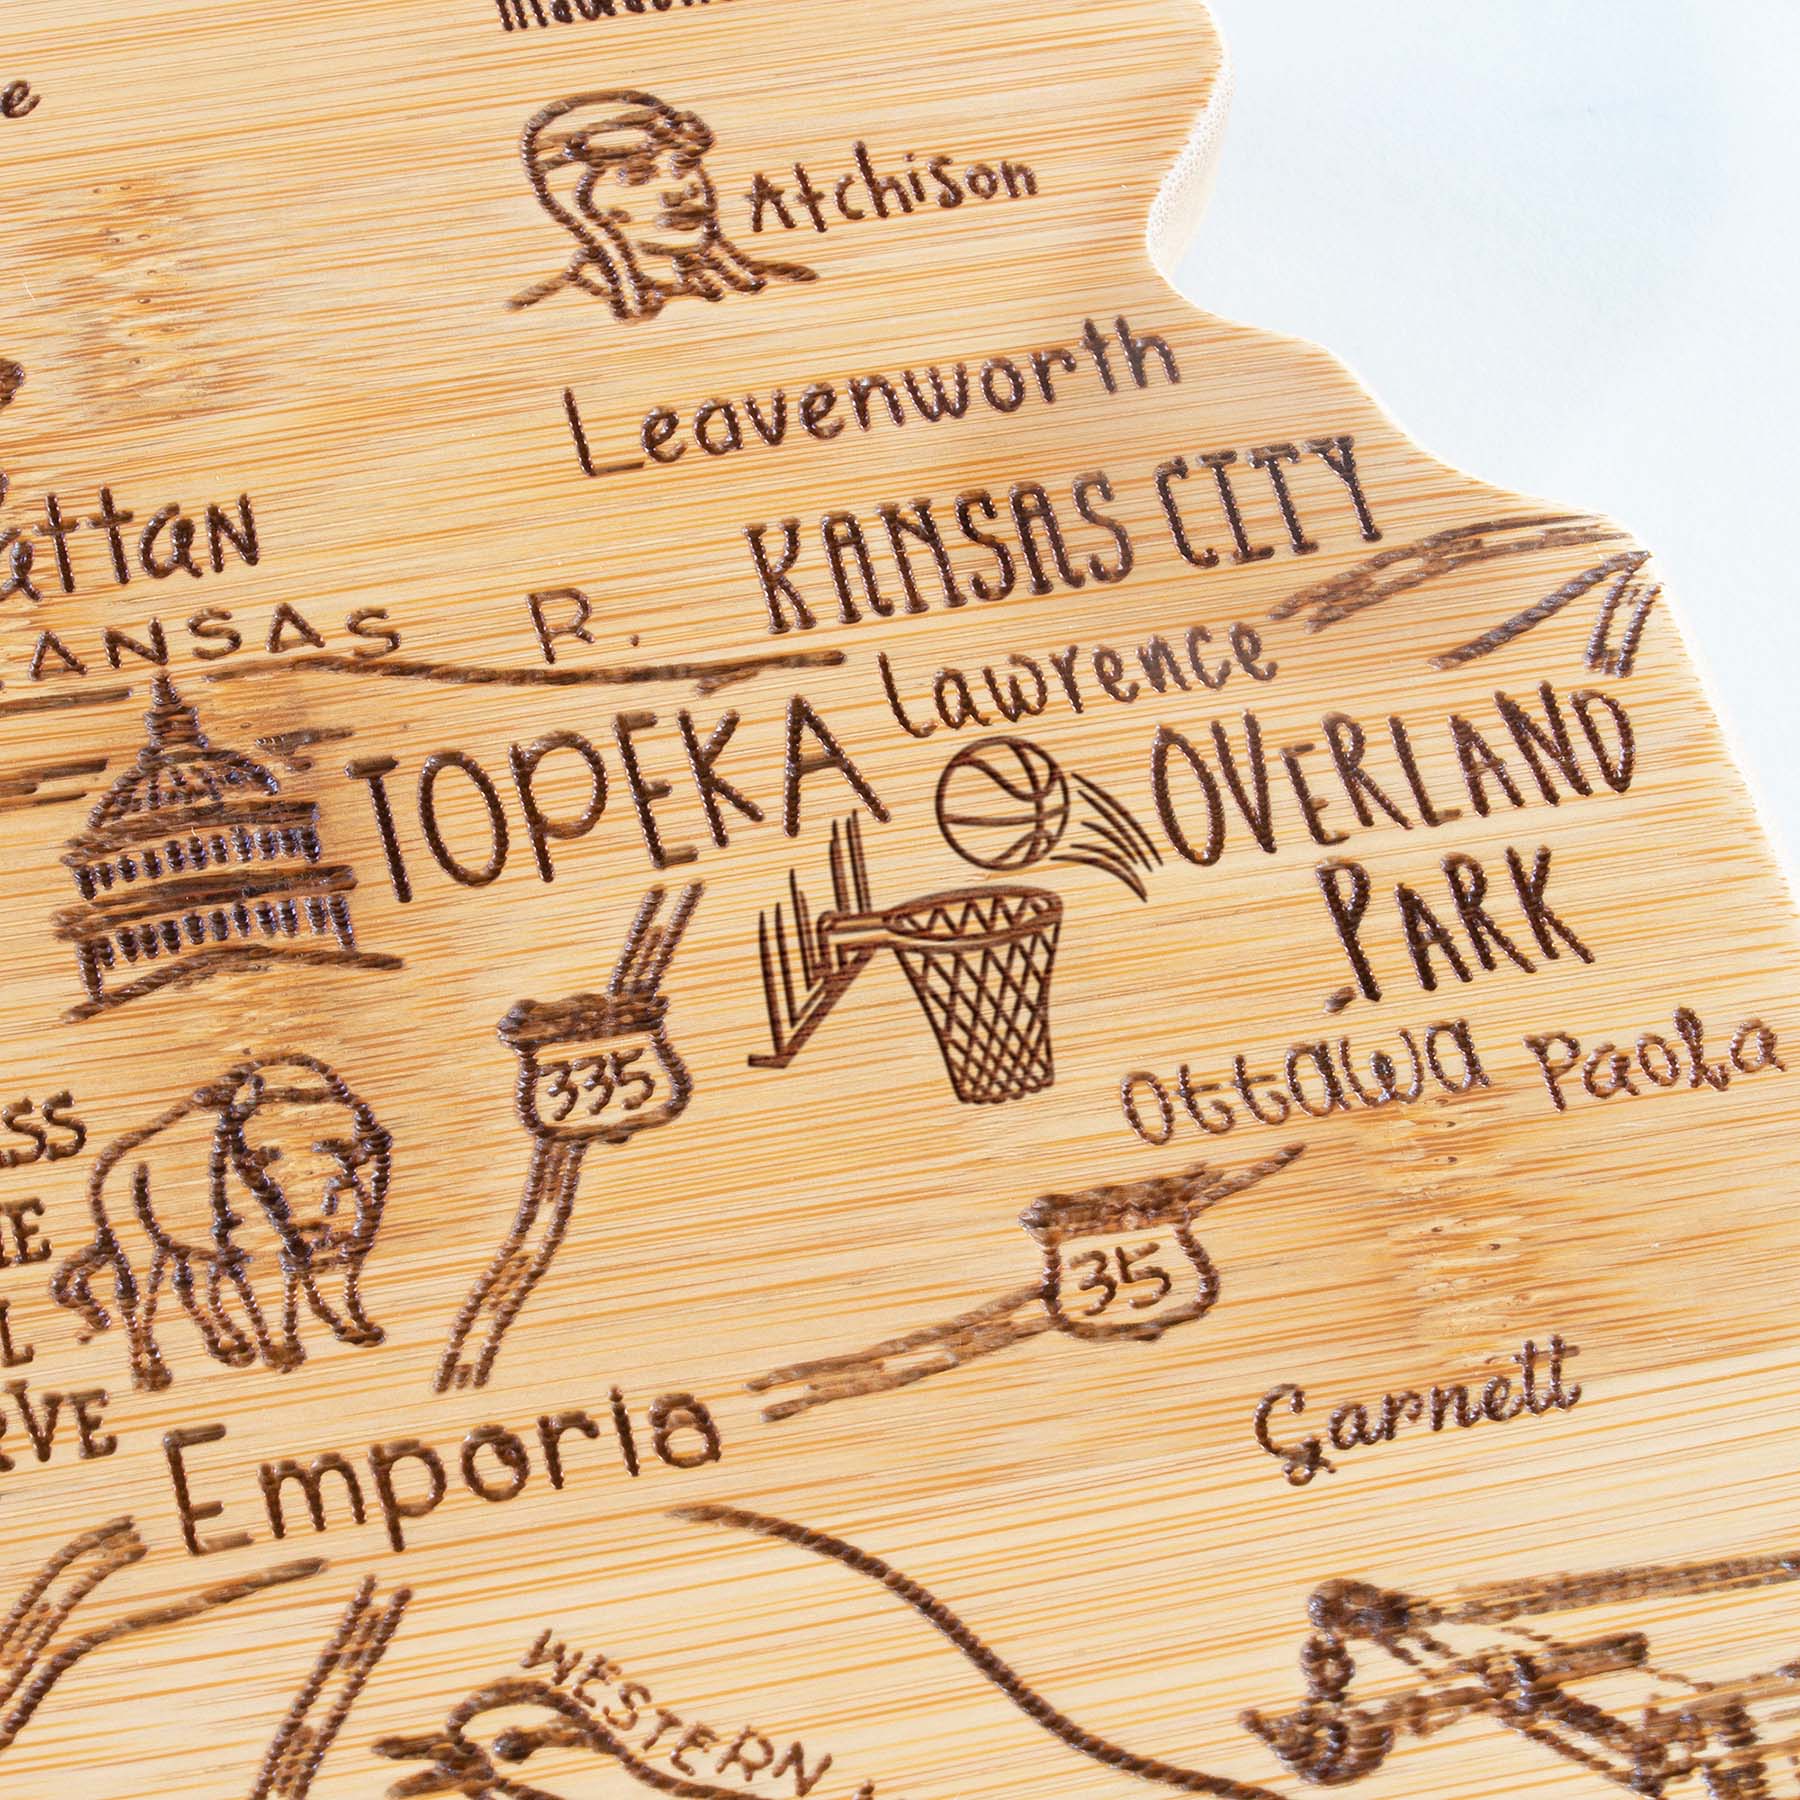 Atchison
Leavenworth
KANSAS CITY
KANSAS R.
Lawrence
TOPEKA
OVERLAND
PARK
335
Ottawa
Paola
35
Garnett
Emporia
WESTERN